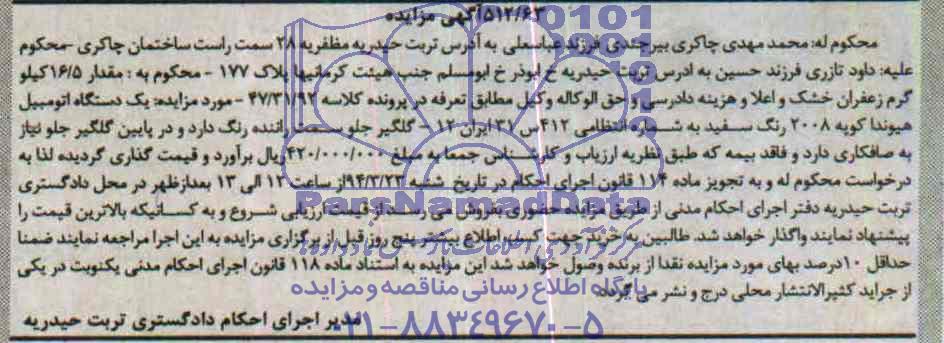 ۵۱۲/۶۳آگهی مزایده
محکوم له: محمد مهدی چاکری بیرجندی فرزند عباسعلی به آدرس تربت حیدریه مظفریه ۲۸ سمت راست ساختمان چاکری -محکوم
علیه: داود تازری فرزند حسین به ادرس تربت حیدریه خ ابوذر خ ابومسلم جنب هیئت کرمانیها پلاک ۱۷۷ - محکوم به : مقدار ۱۶/۵کیلو
گرم زعفران خشک و اعلا و هزینه دادرسی و حق الوکاله وکیل مطابق تعرفه در پرونده کلاسه ۴۷/۳۱/۹۲ - مورد مزایده: یک دستگاه اتومبیل
هیوندا کوپه ۲۰۰۸ رنگ سفید به شماره انتظامی ۴۱۲س۳۱ ایران ۱۲ - گلگیر جلو سمت راننده رنگ دارد و در پایین گلگیر جلو نیاز
به صافکاری دارد و فاقد بیمه که طبق نظریه ارزیاب و کارشناس جمعا به مبلغ ۴۲۰/۰۰۰/۰۰۰ریال برآورد و قیمت گذاری گردیده لذا به
درخواست محکوم له و به تجویز ماده ۱۱۴ قانون اجرای احکام در تاریخ شنبه ۹۴/۲/۲۳از ساعت ۱۲ الی ۱۳ بعدازظهر در محل دادگستری
تربت حیدریه دفتر اجرای احکام مدنی از طریق مزایده حضوری بفروش می رسد از قیمت ارزیابی شروع و به کسانیکه بالاترین قیمت را
پیشنهاد نمایند واگذار خواهد شد. طالبین به خرید جهت کسب اطلاع بیشتر پنج روز قبل از برگزاری مزایده به این اجرا مراجعه نمایند ضمنا
حداقل ۱۰درصد بهای مورد مزایده نقدا از برنده وصول خواهد شد این مزایده به استناد ماده ۱۱۸ قانون اجرای احکام مدنی یکنوبت در یکی
از جراید کثیرالانتشار محلی درج و نشر می گردد.
مدیر اجرای احکام دادگستری تربت حیدریه
ParsNamadData
پایگاه اطلاع رسانی مناقصه و مزایده
۰۲۱-۸۸۳۴۹۶۷۰-۵